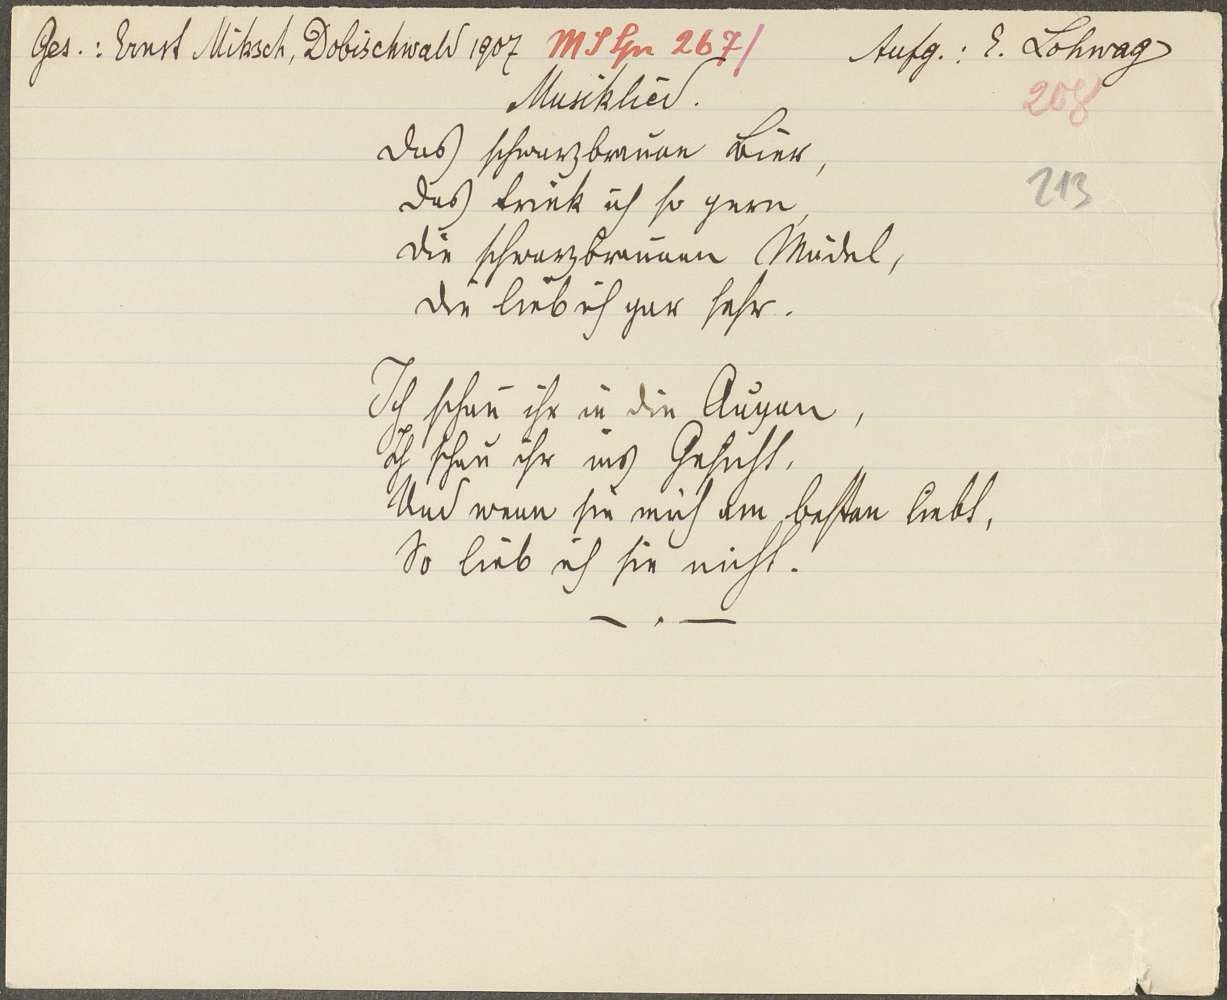 Ges.: Ernst Miksch, Dobischwald 1907 267/ Aufg.: E. Lohwag
Musiklied.
208
Das schwarzbraune Bier,
das trink ich so gern,
213
die schwarzbraunen Mädel,
die lieb ich gar sehr.
Ich schau ihr in die Augen,
ich schau ihr ins Gesicht,
Und wenn sie mich am besten liebt,
So lieb ich sie nicht.